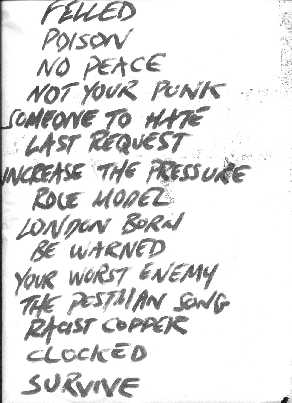 FELLED
POISON
NO PEACE
NOT YOUR PUNK
SOMEONE TO HATE
LAST REQUEST
INCREASE THE PRESSURE
ROLE MODEL
LONDON BORN
BE WARNED
YOUR WORST ENEMY
THE POSTMAN SONG
RACIST COPPER
CLOCKED
SURVIVE